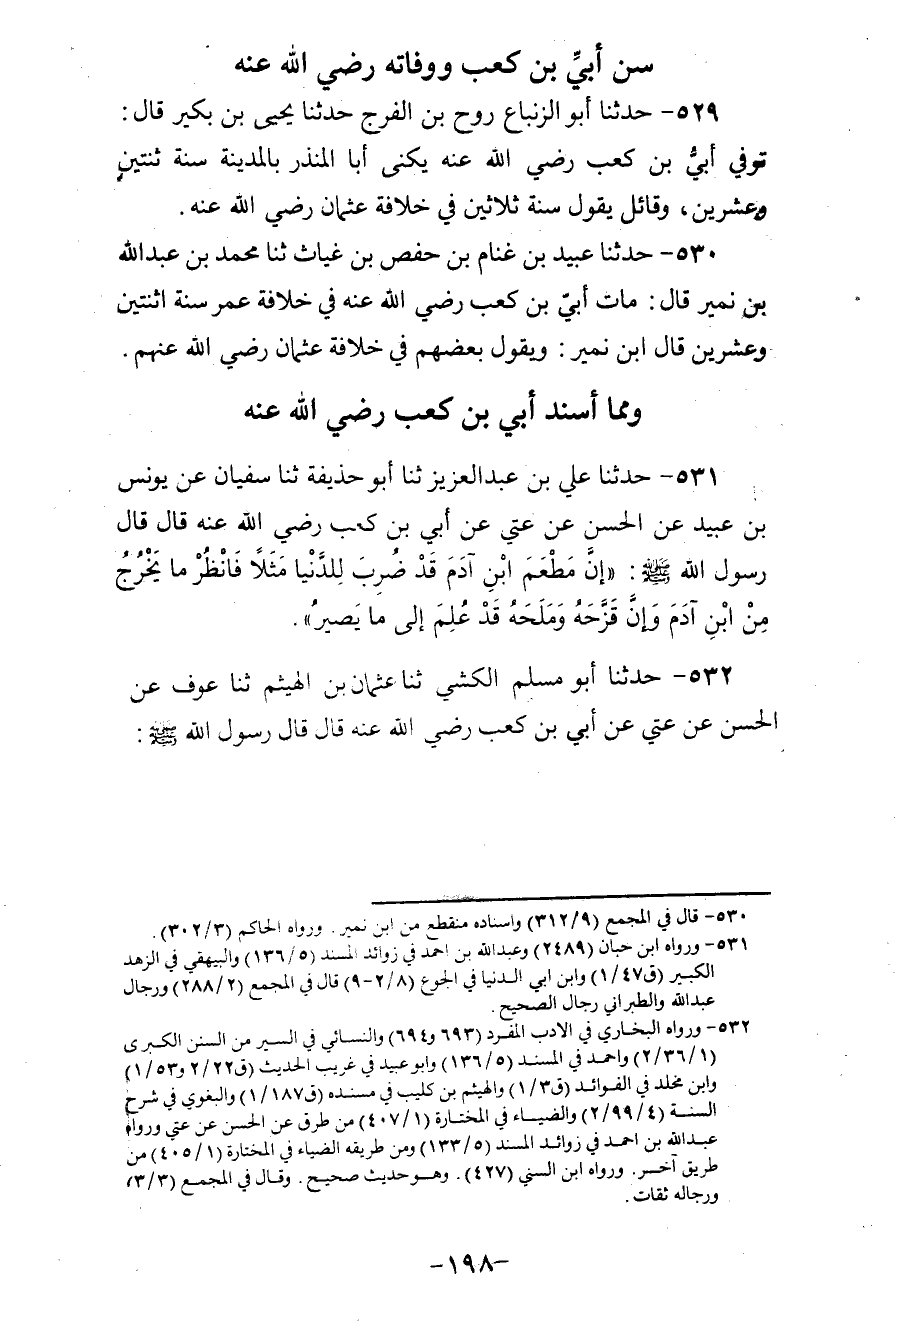 سن أبيِّ بن كعب ووفاته رضي الله عنه
٥٢٩- حدثنا أبو الزنباع روح بن الفرج حدثنا يحيى بن بكير قال :
توفي أبيُّ بن كعب رضي الله عنه يكنى أبا المنذر بالمدينة سنة ثنتين
وعشرين، وقائل يقول سنة ثلاثين في خلافة عثمان رضي الله عنه .
٥٣٠- حدثنا عبيد بن غنام بن حفص بن غياث ثنا محمد بن عبدالله
بن نمير قال : مات أبيّ بن كعب رضي الله عنه في خلافة عمر سنة اثنتين
وعشرين قال ابن نمير : ويقول بعضهم في خلافة عثمان رضي الله عنهم .
ومما أسند أبي بن كعب رضي الله عنه
٥٣١- حدثنا علي بن عبدالعزيز ثنا أبو حذيفة ثنا سفيان عن يونس
بن عبيد عن الحسن عن عتي عن أبي بن كعب رضي الله عنه قال قال
رسول الله ﷺ : «إنَّ مَطْعَمَ ابْنِ آدَمَ قَدْ ضُرِبَ لِلدَّنْيا مَثَلاً فَانْظُرْ ما يَخْرُجُ
مِنْ ابْنِ آدَمَ وَإنَّ قَزَّحَهُ وَمَلَحَهُ قَدْ عُلِمَ إلى ما يَصيرُ» .
٥٣٢- حدثنا أبو مسلم الكشي ثنا عثمان بن الهيثم ثنا عوف عن
الحسن عن عتي عن أبي بن كعب رضي الله عنه قال قال رسول الله ﷺ :
٥٣٠- قال في المجمع (٣١٢/٩) واسناده منقطع من ابن نمير . ورواه الحاكم (٣٠٢/٣) .
٥٣١- ورواه ابن حبان (٢٤٨٩) وعبدالله بن احمد في زوائد المسند (١٣٦/٥) والبيهقي في الزهد
الكبير (ق١/٤٧) وابن ابي الدنيا في الجوع (٩-٢/٨) قال في المجمع (٢٨٨/٢) ورجال
عبدالله والطبراني رجال الصحيح .
٥٣٢- ورواه البخاري في الادب المفرد (٦٩٣ و٦٩٤) والنسائي في السير من السنن الكبرى
(٢/٣٦/١) واحمد في المسند (١٣٦/٥) وابو عبيد في غريب الحديث (ق٢/٢٢ و١/٥٣)
وابن مخلد في الفوائد (ق١/٣) والهيثم بن كليب في مسنده (ق١/١٨٧) والبغوي في شرح
السنة (٢/٩٩/٤) والضياء في المختارة (٤٠٧/١) من طرق عن الحسن عن عتي ورواه
عبدالله بن احمد في زوائد المسند (١٣٣/٥) ومن طريقه الضياء في المختارة (٤٠٥/١) من
طريق آخر. ورواه ابن السني (٤٢٧) . وهو حديث صحيح . وقال في المجمع (٣/٣)
ورجاله ثقات .
-١٩٨-